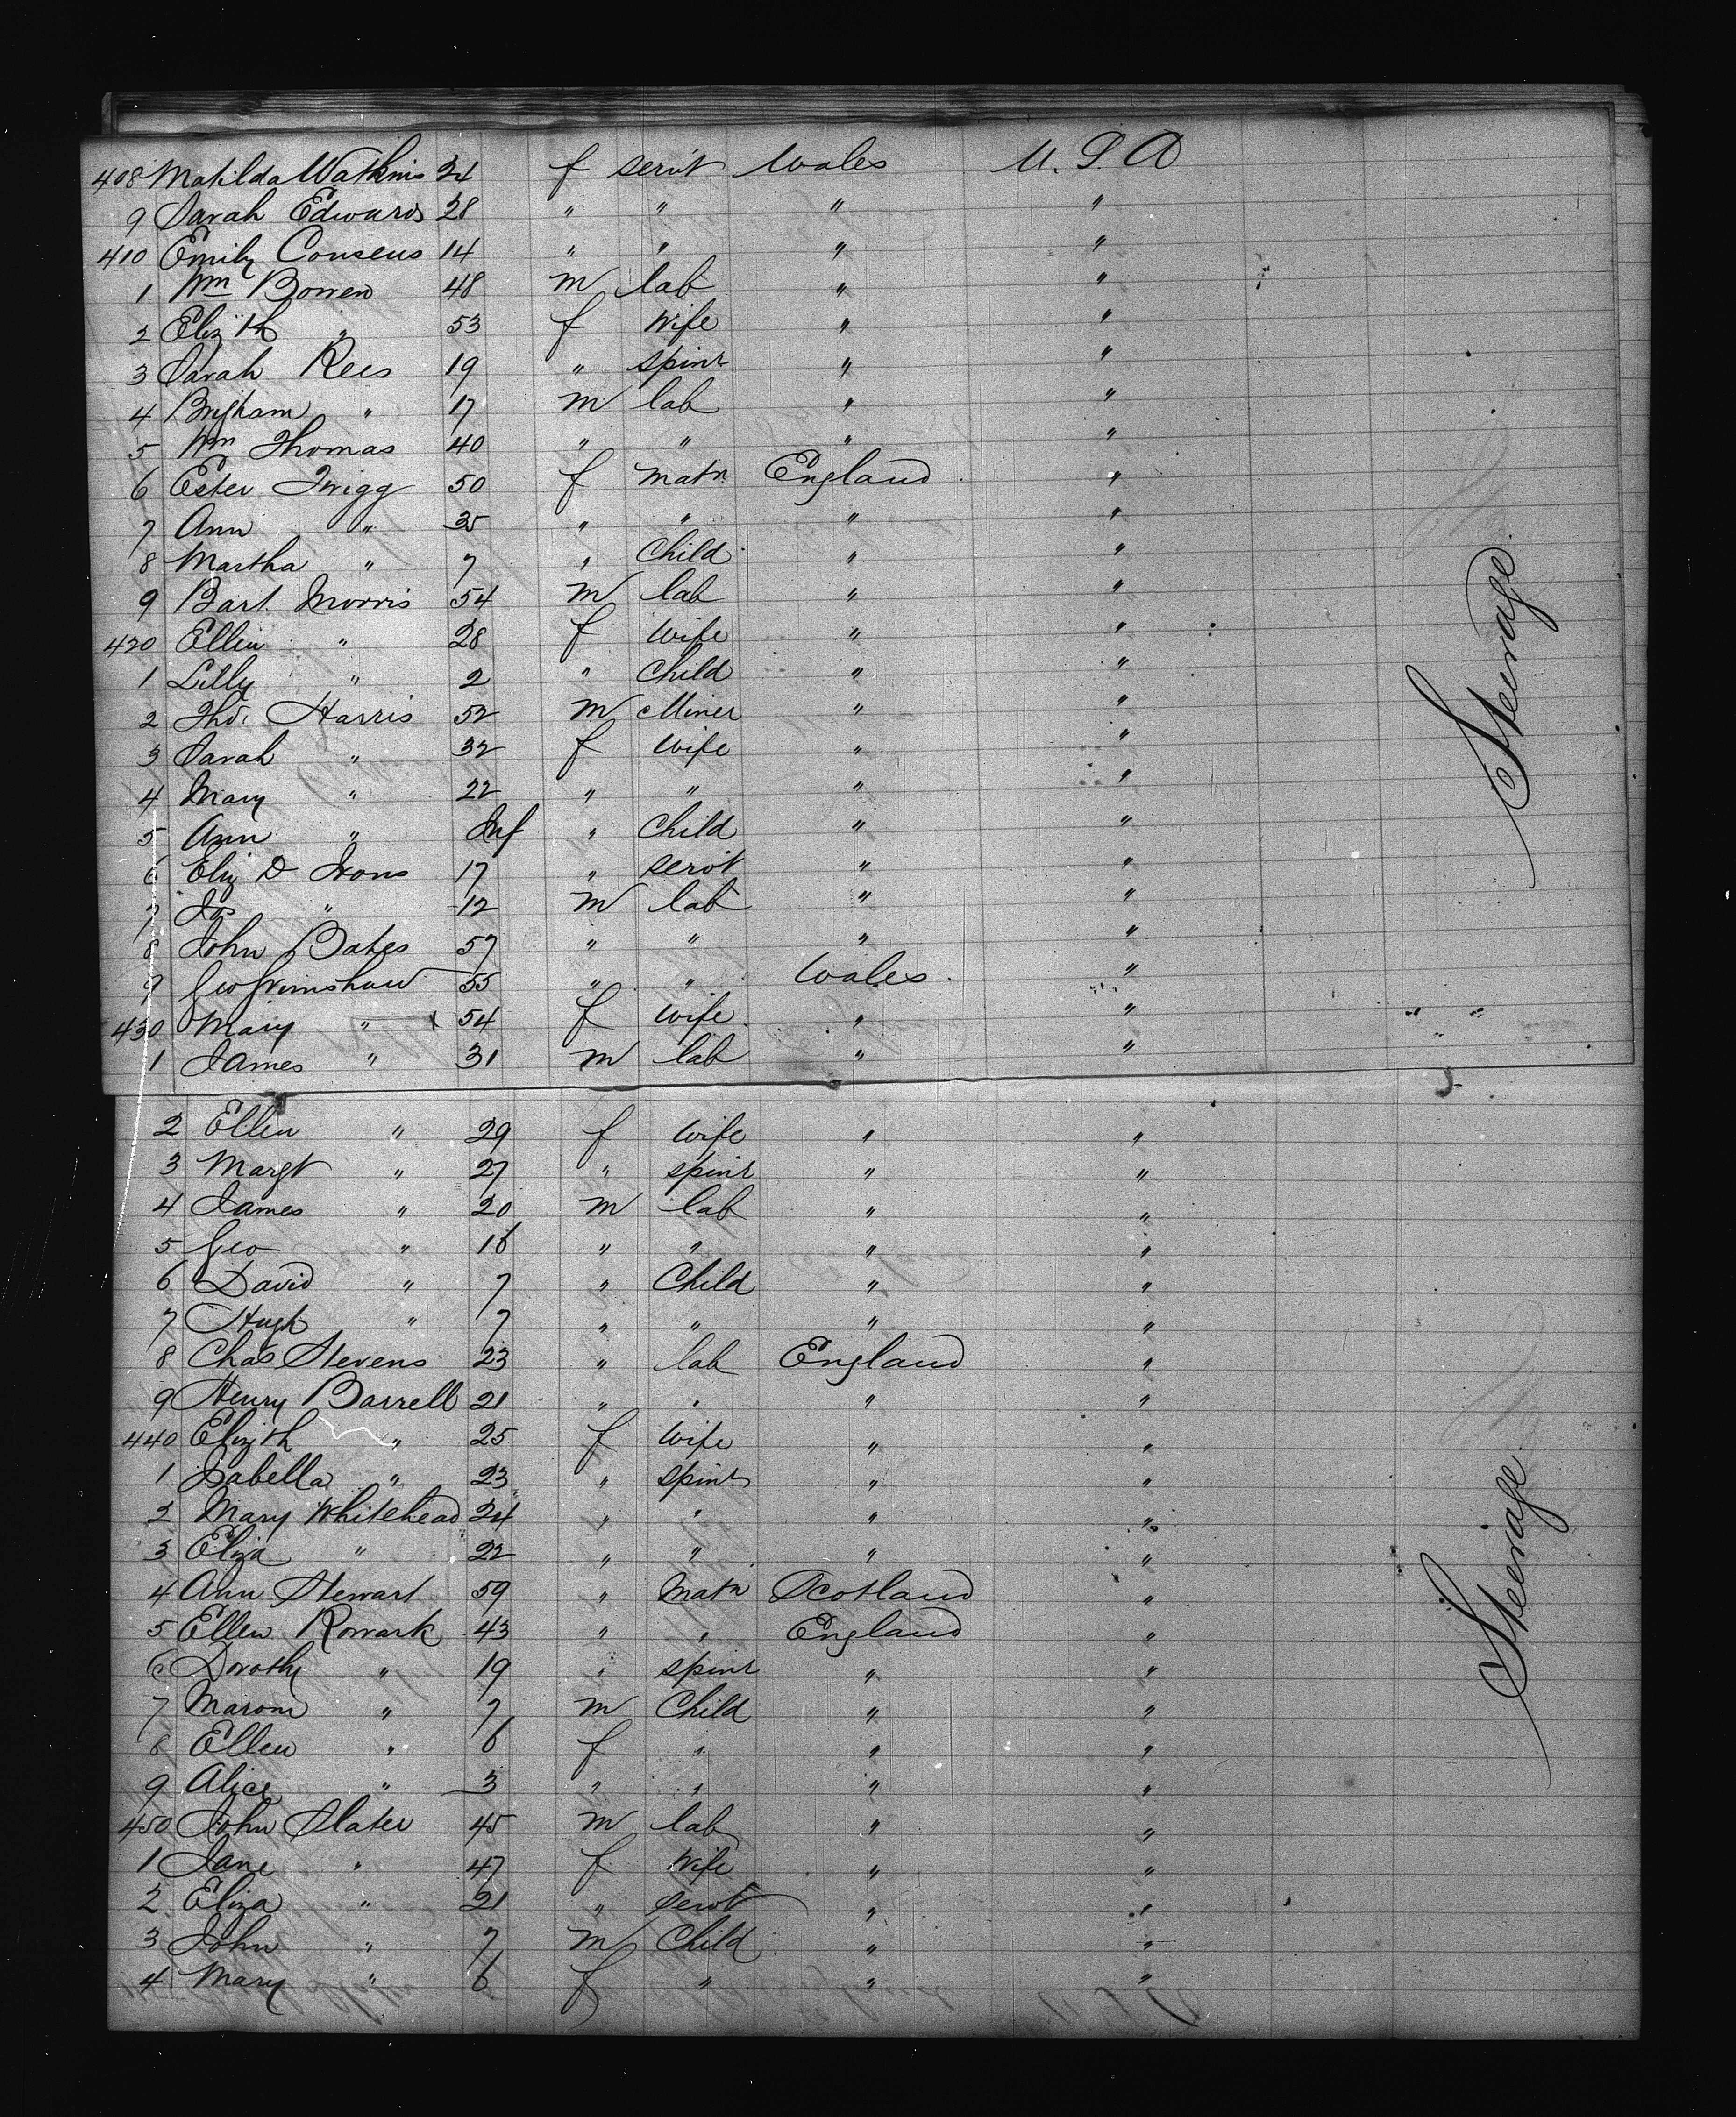 408 Matilda Watkins 24 f servt Wales U.S.A
9 Sarah Edwards 28 " " " "
410 Emily Conseus 14 " " " "
1 Wm Bowen 48 m lab " "
2 Elizth " 53 f Wife " "
3 Sarah Rees 19 " spinr " "
4 Brigham " 17 m lab " "
5 Wm Thomas 40 " " " "
6 Ester Twigg 50 f Matn England "
7 Ann " 35 " " " "
8 Martha " 7 " Child " "
9 Bart. Morris 54 m lab " "
420 Ellen " 28 f Wife " "
1 Lilly " 2 " Child " "
2 Thos. Harris 52 m Miner " "
3 Sarah " 32 f Wife " "
4 Mary " 22 " " " "
5 Ann " Inf " Child " "
6 Eliz D Irons 17 " servt " "
7 Jos " 12 m lab " "
8 John Bates 57 " " " "
9 Geo Grimshaw 55 " " Wales "
430 Mary " 54 f Wife " "
1 James " 31 m lab " "
Steerage.
2 Ellen " 29 f Wife " "
3 Margt " 27 " spinr " "
4 James " 20 m lab " "
5 Geo " 16 " " " "
6 David " 7 " Child " "
7 Hugh " 7 " " " "
8 Chas Stevens 23 " lab England "
9 Henry Barrell 21 " " " "
440 Elizth " 25 f Wife " "
1 Isabella " 23 " spinr " "
2 Mary Whitehead 24 " " " "
3 Eliza " 22 " " " "
4 Ann Stewart 59 " Matn Scotland "
5 Ellen Rowark 43 " " England "
6 Dorothy " 19 " spinr " "
7 Marom " 7 m Child " "
8 Ellen " 6 f " " "
9 Alice " 3 " " " "
450 John Slater 45 m lab " "
1 Jane " 47 f Wife " "
2 Eliza " 21 " servt " "
3 John " 7 m Child " "
4 Mary " 6 f " " "
Steerage.